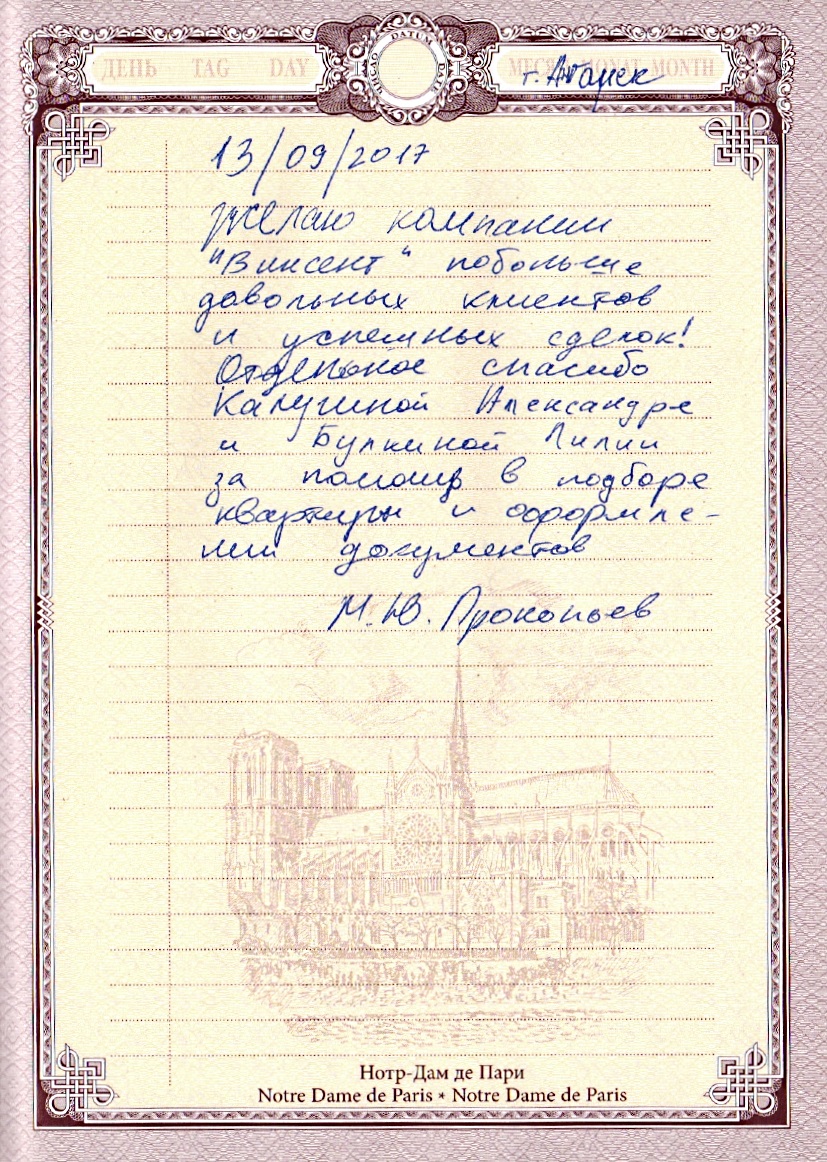 ДЕНЬ TAG DAY
ЧИСЛО DATUM DATE
МЕСЯЦ MONAT MONTH
г. Ангарск
13/09/2017
Желаю компании
"Винсент" побольше
довольных клиентов
и успешных сделок!
Отдельное спасибо
Калугиной Александре
и Булкиной Лилии
за помощь в подборе
квартиры и оформле-
нии документов
М.Ю. Прокопьев
Нотр-Дам де Пари
Notre Dame de Paris * Notre Dame de Paris